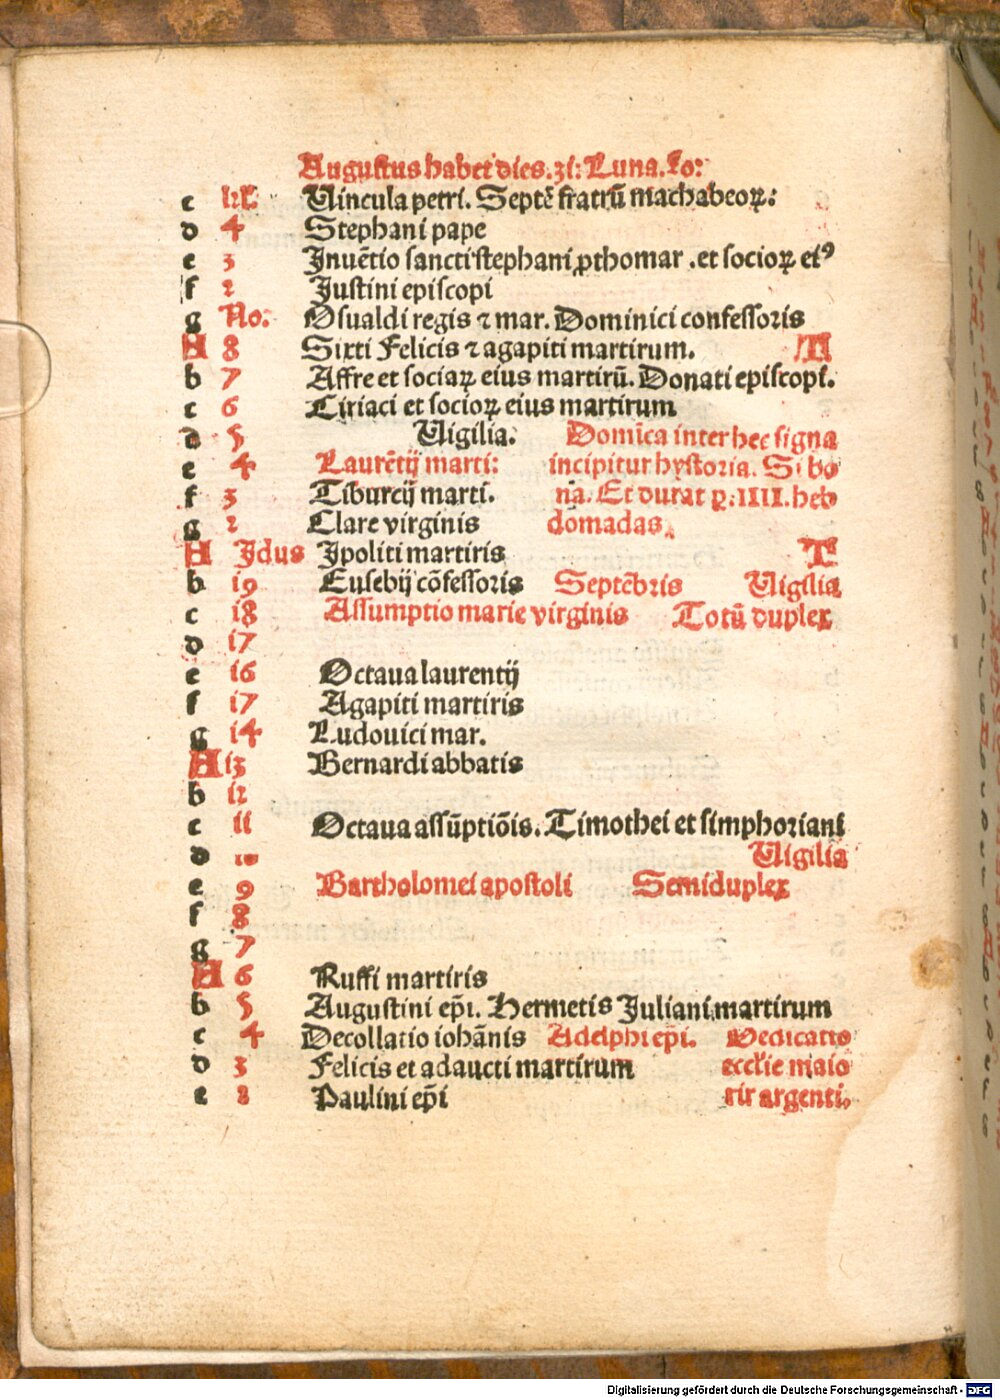 Augustus habet dies. 31: Luna. 30:
c kl. Uincula petri. Septē fratrū machabeoꝝ:
d 4 Stephani pape
e 3 Inuētio sancti stephani ꝓthomar. et socioꝝ eiꝰ
f 2 Justini episcopi
g No: Osualdi regis ⁊ mar. Dominici confessoris
A 8 Sixti Felicis ⁊ agapiti martirum. T
b 7 Affre et sociaꝝ eius martirū. Donati episcopi.
c 6 Ciriaci et socioꝝ eius martirum
d 5 Uigilia. Domīca inter hec signa
e 4 Laurētij marti: incipitur hystoria. Si bo
f 3 Tiburcij marti. na. Et durat ꝑ. IIII. heb
g 2 Clare virginis domadas.
A Idus Ipoliti martiris T
b 19 Eusebij cōfessoris Septēbris Uigilia
c 18 Assumptio marie virginis Totū duplex
d 17
e 16 Octaua laurentij
f 17 Agapiti martiris
g 14 Ludouici mar.
A 13 Bernardi abbatis
b 12
c 11 Octaua assūptiōis. Timothei et simphoriani
d 10 Uigilia
e 9 Bartholomei apostoli Semiduplex
f 8
g 7
A 6 Ruffi martiris
b 5 Augustini ep̄i. Hermetis Juliani martirum
c 4 Decollatio iohānis Adelphi ep̄i. Dedicatio
d 3 Felicis et adaucti martirum eccl'ie maio
e 2 Paulini ep̄i rir argenti.
Digitalisierung gefördert durch die Deutsche Forschungsgemeinschaft - DFG